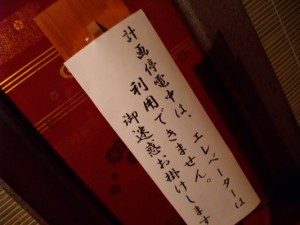 計画停電中は、エレベーターは
利用できません。
御迷惑お掛けします